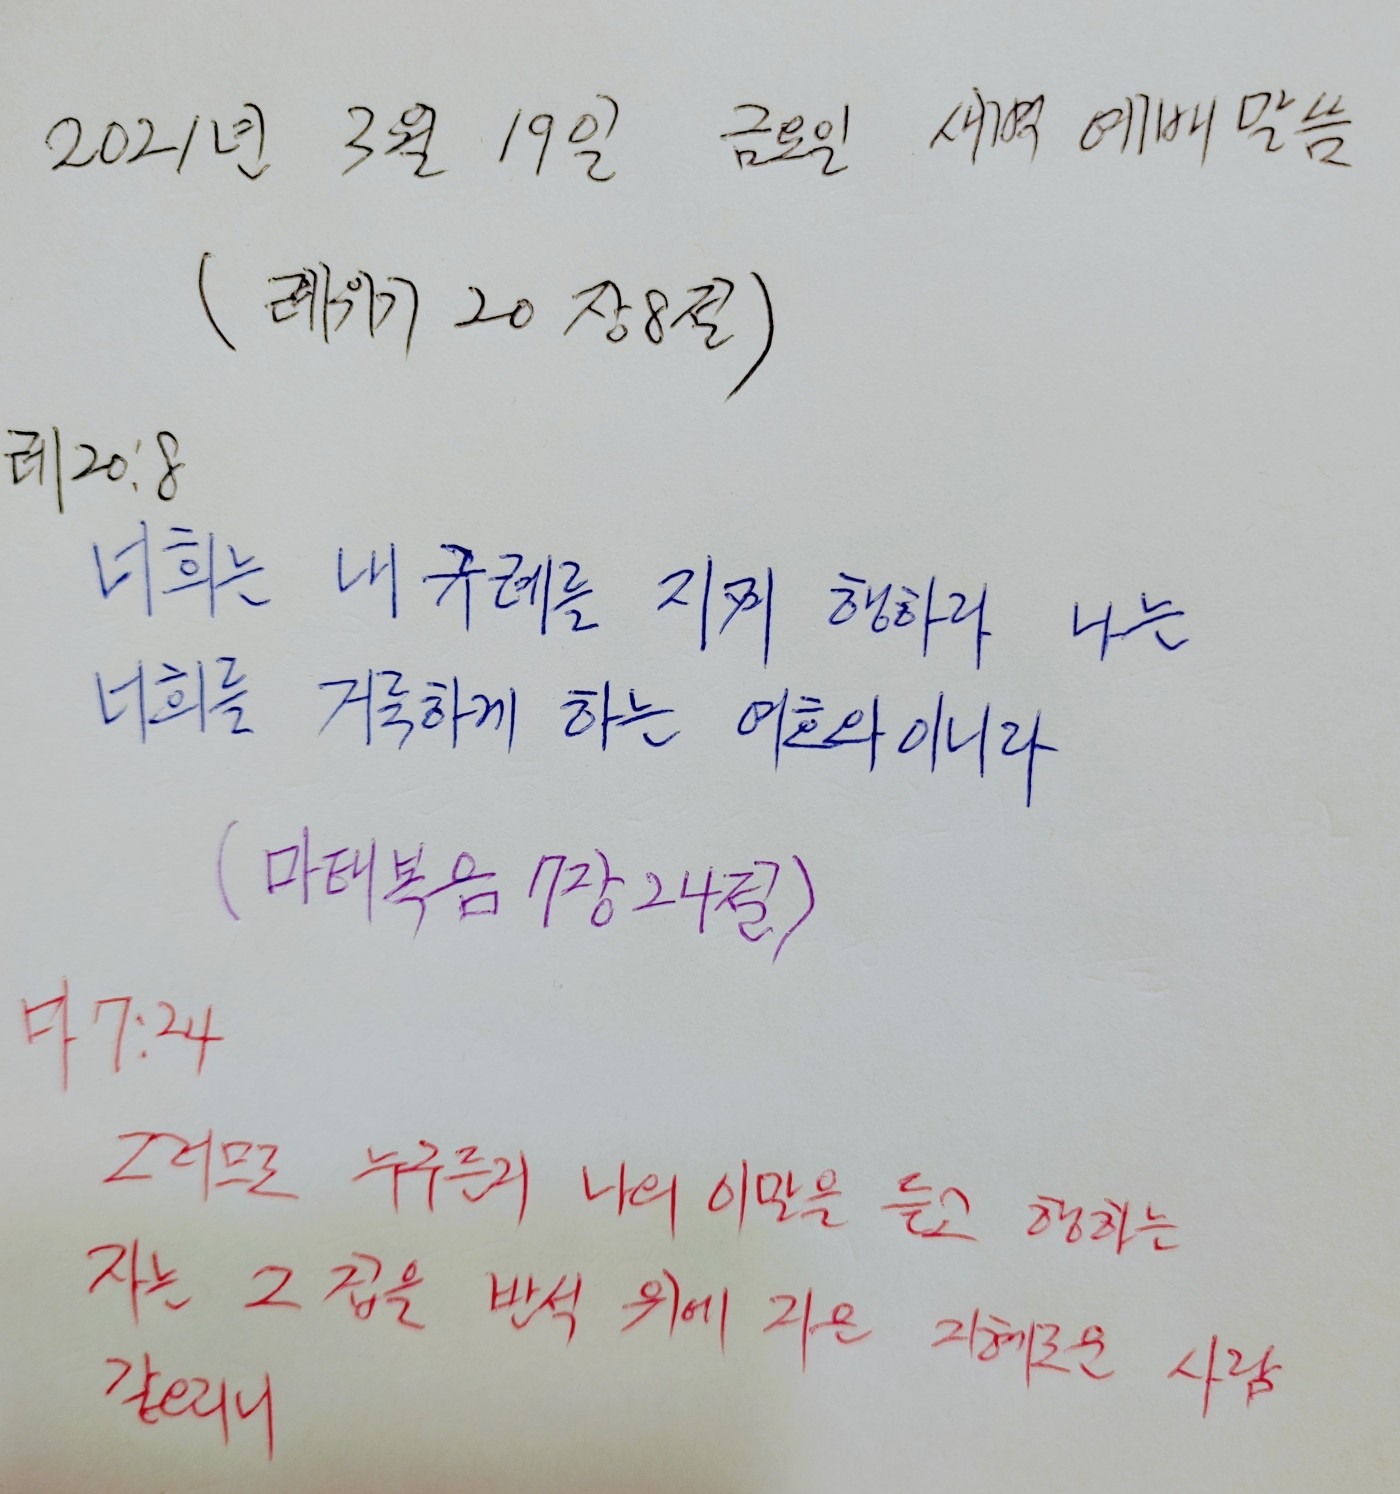 2021년 3월 19일 금요일 새벽 예배 말씀
(레위기 20장8절)
레20:8
너희는 내 규례를 지켜 행하라 나는
너희를 거룩하게 하는 여호와이니라
(마태복음 7장24절)
마7:24
그러므로 누구든지 나의 이말을 듣고 행하는
자는 그 집을 반석 위에 지은 지혜로운 사람
같으리니